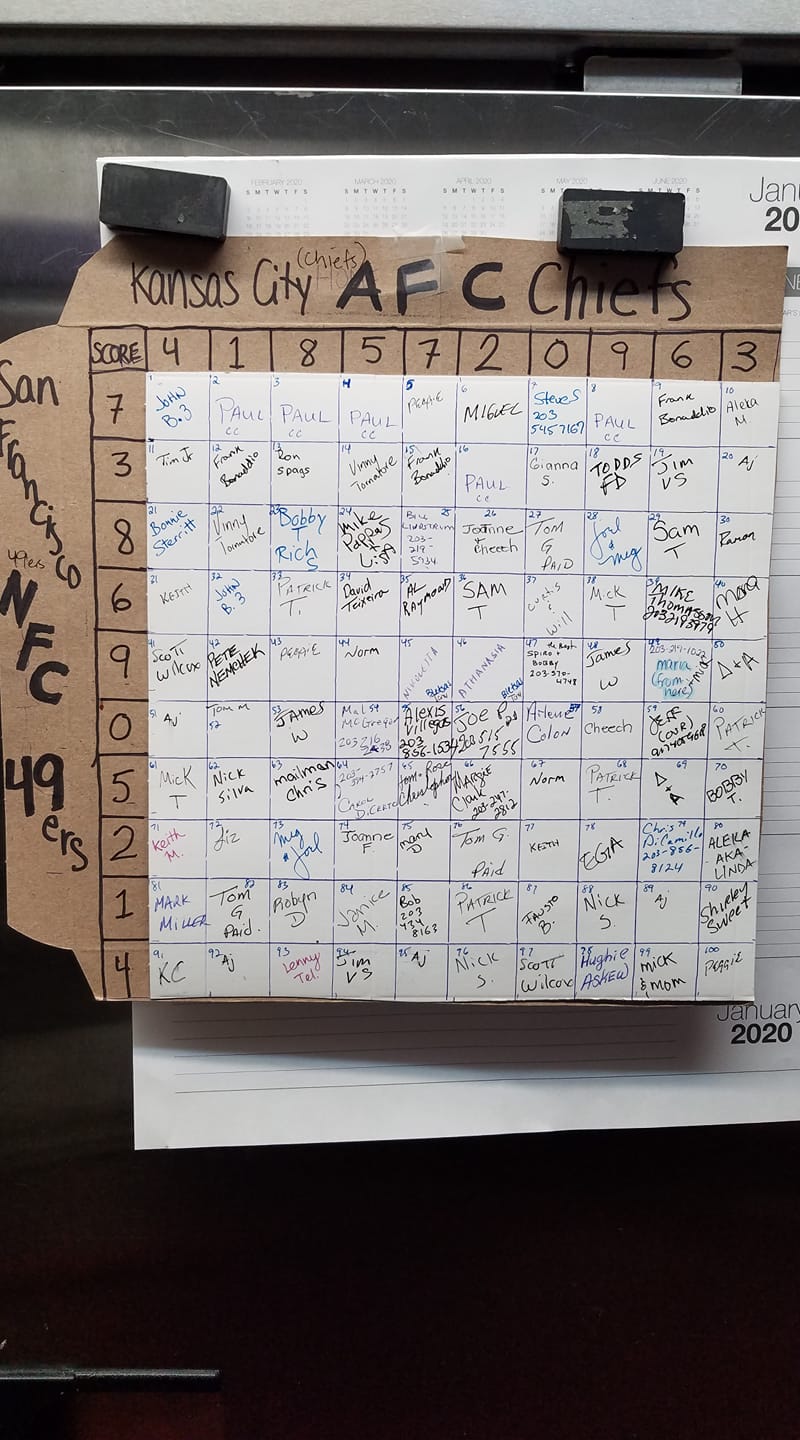 FEBRUARY 2020 MARCH 2020 APRIL 2020 MAY 2020 JUNE 2020
S M T W T F S S M T W T F S S M T W T F S S M T W S M T W T F S
Janu
20
Kansas City (Chiefs) AFC Chiefs
San Francisco 49ers NFC 49ers
SCORE 4 1 8 5 7 2 0 9 6 3
7
1 JOHN B.3
2 PAUL cc
3 PAUL cc
4 PAUL cc
5 PEGGIE
6 MIGUEL
7 Steve S 203 5457167
8 PAUL cc
9 Frank Bonaddio
10 Aleka M
3
11 Tim Jr
12 Frank Bonaddio
13 Ron Spags
14 Vinny Tomatore
15 Frank Bonaddio
16 PAUL cc
17 Gianna S.
18 TODDS FD
19 JIM VS
20 Aj
8
21 Bonnie Sterritt
22 Vinny Tomatore
23 Bobby T Rich S
24 Mike Pappas + Lisa
25 BILL LINDSTROM 203-219-5934
26 Joanne & cheech
27 Tom G PAID
28 Joel & Meg
29 Sam T
30 Ramon
6
31 KEITH
32 JOHN B.3
33 PATRICK T.
34 David Teixeira
35 AL RAYMOND
36 SAM T
37 Curtis & Will
38 Mick T
39 MIKE Thomasson 2032193979
40 Mara H
9
41 Scott Wilcox
42 PETE NEMCHEK
43 PEGGIE
44 Norm
45 NICOLETTA
46 ATHANASIA
47 the Best Spiro + Bobby 203-570-4748
48 James W
49 203-219-1022 maria (from here) + ma
50 D + A
0
51 Aj
52 Tom M
53 JAMES W
54 Mal McGregor
55 Alexis Villegas 203 856-1534
56 Joe P 203 515 7555
57 Arlene Colon
58 Cheech
59 JEFF (OUR)
60 PATRICK T.
5
61 Mick T
62 Nick Silva
63 mailman Chris
64 CAROL D.CERTO
65 Tom + Rose
66 MARGIE Clark 203-247-2812
67 Norm
68 PATRICK T.
69 D + A
70 BOBBY T.
2
71 Keith M.
72 Liz
73 Meg & Joel
74 Joanne F.
75 mary D
76 Tom G. Paid
77 KEITH
78 EGIA
79 Chris DiCamillo 203-856-8124
80 ALEKA -AKA- LINDA
1
81 MARK MILLER
82 Tom G Paid.
83 Robyn D
84 Janice M.
85 Bob 203 434 8163
86 PATRICK T
87 FAUSTO B.
88 Nick S.
89 Aj
90 Shirley Sweet
4
91 KC
92 Aj
93 Lenny Tel.
94 JIM VS
95 Aj
96 Nick S.
97 Scott Wilcox
98 Hughie ASKEW
99 mick & mom
100 PEGGIE
January
2020